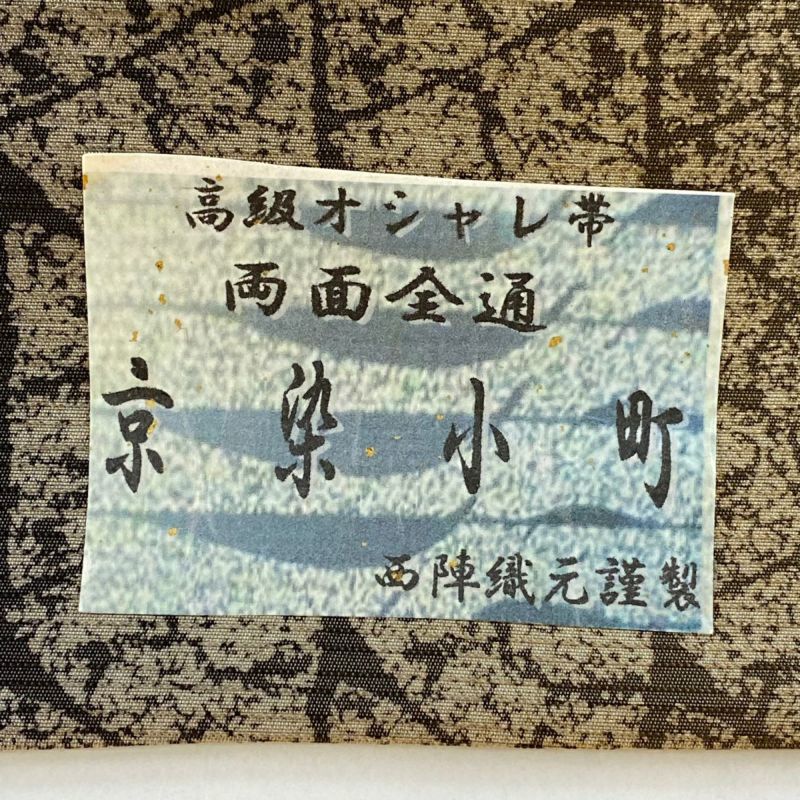 高級オシャレ帯
両面全通
京染小町
西陣織元謹製